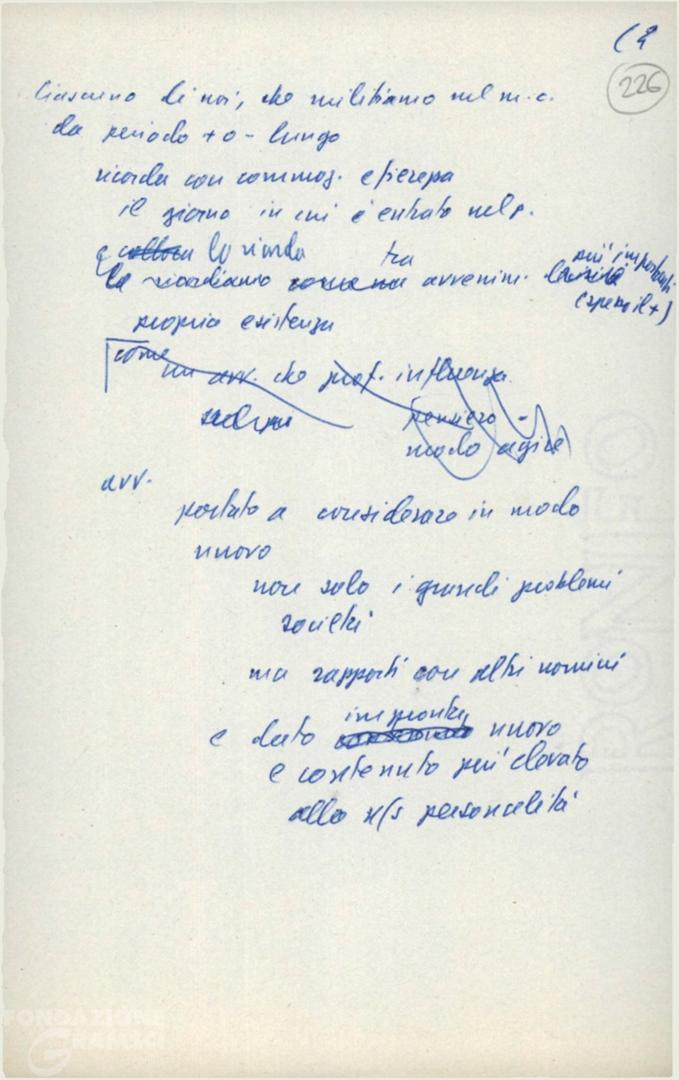 (2
226
Ciascuno di noi, che militiamo nel m.c.
da periodo + o - lungo
ricorda con commoz. e fierezza
il giorno in cui è entrato nel p.
e colloca lo ricorda
tra
più importanti
le ricordiamo come un avvenim. della
(spero il +)
propria esistenza
come
un avv. che prof. influenza
pensiero -
modo agire
avv.
portato a considerare in modo
nuovo
non solo i grandi problemi
società
ma rapporti con altri uomini
impronta
e dato nuovo
e contenuto più elevato
alla n/s personalità
FONDAZIONE
GRAMSCI